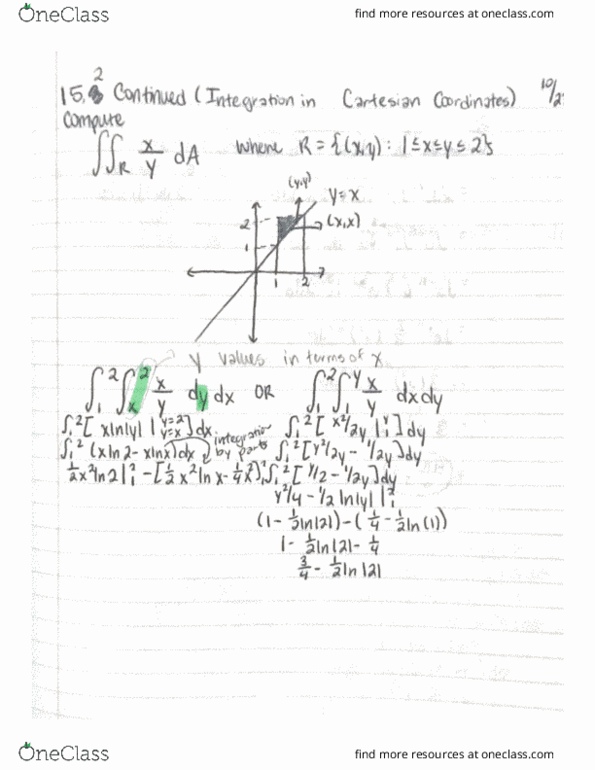 OneClass
find more resources at oneclass.com
2
15. Continued (Integration in Cartesian Coordinates) 10/2
Compute
∬R x/y dA where R = {(x,y) : 1 ≤ x ≤ y ≤ 2}
(y,y)
y=x
(x,x)
2
1
1 2
y values in terms of x
∫₁² ∫ₓ² x/y dy dx OR ∫₁² ∫₁ʸ x/y dx dy
∫₁² [ x ln|y| |y=2 y=x ] dx ∫₁² [ x²/2y |₁ʸ ] dy
∫₁² (x ln 2 - x ln x) dx integration by parts ∫₁² [ y²/2y - 1/2y ] dy
1/2 x² ln 2 |₁² - [ 1/2 x² ln x - 1/4 x² ]₁² ∫₁² [ y/2 - 1/2y ] dy
y²/4 - 1/2 ln|y| |₁²
(1 - 1/2 ln|2|) - (1/4 - 1/2 ln(1))
1 - 1/2 ln|2| - 1/4
3/4 - 1/2 ln|2|
OneClass
find more resources at oneclass.com